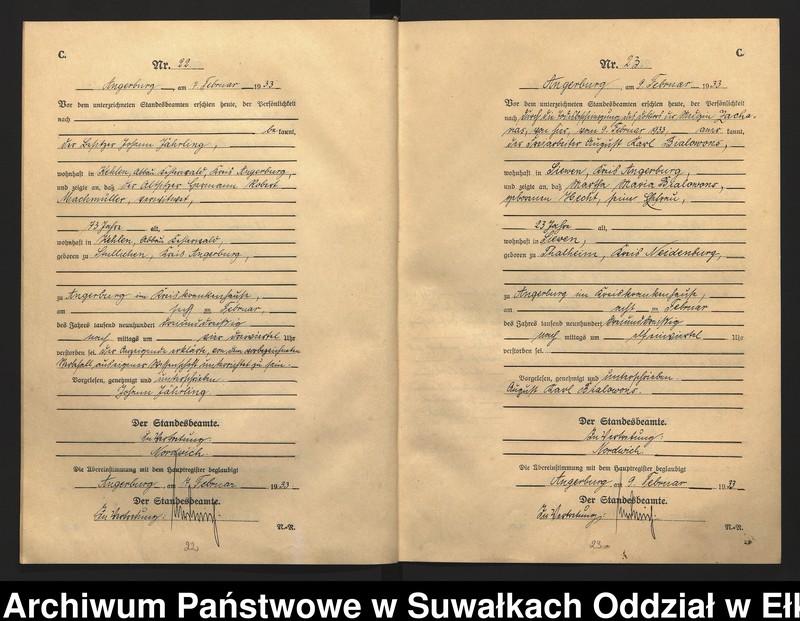 C.
Nr. 22
Angerburg, am 7. Februar 1933
Vor dem unterzeichneten Standesbeamten erschien heute, der Persönlichkeit
nach
bekannt,
der Besitzer Johann Jährling,
wohnhaft in Kehlen, Abbau, Kreis Angerburg,
und zeigte an, daß der Altsitzer Hermann Robert
Machmüller, verwitwet,
73 Jahre alt,
wohnhaft in Kehlen, Abbau
geboren zu Stullichen, Kreis Angerburg,
zu Angerburg im Kreiskrankenhause,
am sechsten Februar,
des Jahres tausend neunhundert dreiunddreißig
nach mittags um dreiviertel Uhr
verstorben sei. Der Anzeigende erklärte, von dem vorbezeichneten
Sterbefall aus eigener Wissenschaft unterrichtet zu sein.
Vorgelesen, genehmigt und unterschrieben.
Johann Jährling.
Der Standesbeamte.
In Vertretung:
Nordwich.
Die Übereinstimmung mit dem Hauptregister beglaubigt
Angerburg, am 7. Februar 1933
Der Standesbeamte.
In Vertretung:
N.-R.
22
C.
Nr. 23
Angerburg, am 9. Februar 1933
Vor dem unterzeichneten Standesbeamten erschien heute, der Persönlichkeit
nach durch die des Doktors der Medizin Zacha-
rias, von hier, vom 9. Februar 1933 anerkannt,
der August Karl Bialowons,
wohnhaft in Siewen, Kreis Angerburg,
und zeigte an, daß Martha Maria Bialowons,
geborenen Hecht, seine Ehefrau,
23 Jahre alt,
wohnhaft in Siewen,
geboren zu Thalheim, Kreis Neidenburg,
zu Angerburg im Kreiskrankenhause,
am achten Februar
des Jahres tausend neunhundert dreiunddreißig
nach mittags um Uhr
verstorben sei.
Vorgelesen, genehmigt und unterschrieben.
August Karl Bialowons.
Der Standesbeamte.
In Vertretung:
Nordwich.
Die Übereinstimmung mit dem Hauptregister beglaubigt
Angerburg, am 9. Februar 1933
Der Standesbeamte.
In Vertretung:
N.-R.
23
Archiwum Państwowe w Suwałkach Oddział w Ełk